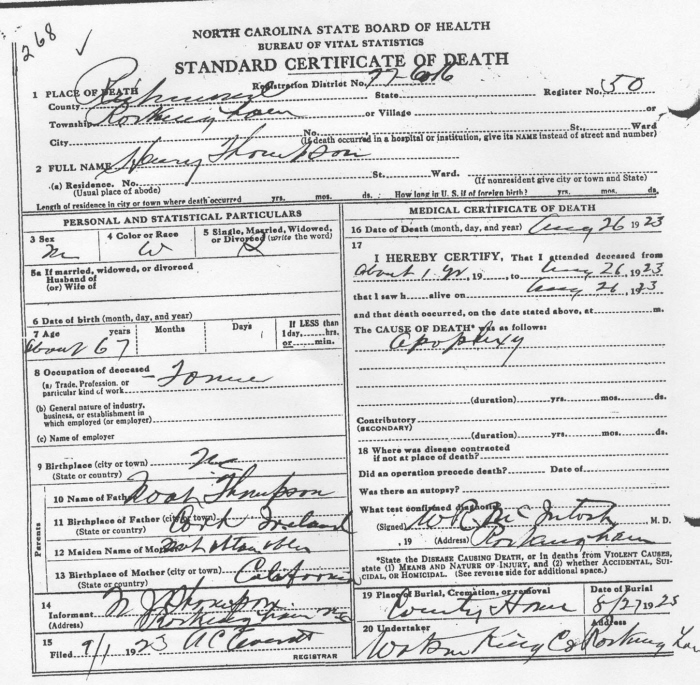 268
NORTH CAROLINA STATE BOARD OF HEALTH
BUREAU OF VITAL STATISTICS
STANDARD CERTIFICATE OF DEATH
1 PLACE OF DEATH Registration District No. 77-6016 Register No. 50
County Richmond State
Township Rockingham or Village or
City No. St., Ward
(If death occurred in a hospital or institution, give its NAME instead of street and number)
2 FULL NAME Henry Thompson
(a) Residence. No. St., Ward.
(Usual place of abode) (If nonresident give city or town and State)
Length of residence in city or town where death occurred yrs. mos. ds. How long in U. S. if of foreign birth? yrs. mos. ds.
PERSONAL AND STATISTICAL PARTICULARS
3 Sex 4 Color or Race 5 Single, Married, Widowed, or Divorced (write the word)
M W S
5a If married, widowed, or divorced
Husband of
(or) Wife of
6 Date of birth (month, day, and year)
7 Age years Months Days If LESS than
About 67 1 day, hrs.
or min.
8 Occupation of deceased
(a) Trade, Profession, or
particular kind of work
(b) General nature of industry,
business, or establishment in
which employed (or employer)
(c) Name of employer
9 Birthplace (city or town) NC
(State or country)
10 Name of Father Noah Thompson
11 Birthplace of Father (city or town) Cork Ireland
(State or country)
12 Maiden Name of Mother
13 Birthplace of Mother (city or town) California
(State or country)
Parents
14
Informant M J Thompson
(Address) Rockingham NC
15
Filed 9/1 1923 A C Everett
REGISTRAR
MEDICAL CERTIFICATE OF DEATH
16 Date of Death (month, day, and year) Aug 26 1923
17
I HEREBY CERTIFY, That I attended deceased from
About 1 yr, 19 , to Aug 26, 1923
that I saw h alive on Aug 26, 1923
and that death occurred, on the date stated above, at m.
The CAUSE OF DEATH* was as follows:
Apoplexy
(duration) yrs. mos. ds.
Contributory
(SECONDARY)
(duration) yrs. mos. ds.
18 Where was disease contracted
if not at place of death?
Did an operation precede death? Date of
Was there an autopsy?
What test confirmed diagnosis?
(Signed) McIntosh M. D.
, 19 (Address) Rockingham
*State the DISEASE CAUSING DEATH, or in deaths from VIOLENT CAUSES,
state (1) MEANS AND NATURE OF INJURY, and (2) whether ACCIDENTAL, SUI-
CIDAL, or HOMICIDAL. (See reverse side for additional space.)
19 Place of Burial, Cremation, or removal Date of Burial
County Home 8/27 1923
20 Undertaker Address
Watson King Co Rockingham